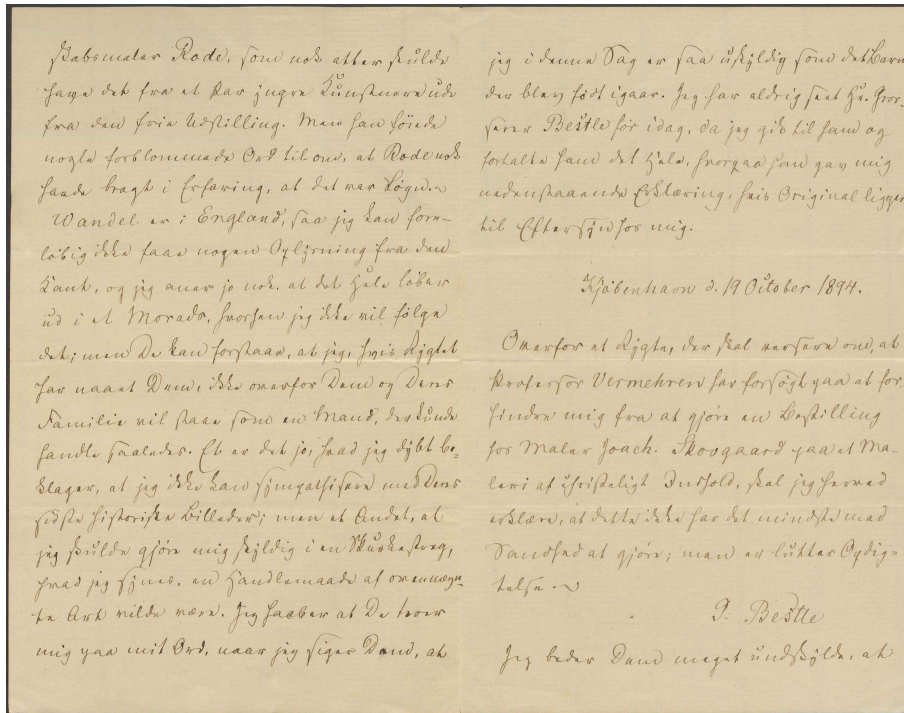 skabsmaler Rode, som nok atter skulde
have det fra et Par yngre Kunstnere ude
fra den frie Udstilling. Men han föiede
nogle forblommede Ord til om, at Rode nok
havde bragt i Erfaring, at det var Løgn.
Wandel er i England, saa jeg kan fore-
löbig ikke faae nogen Oplysning fra den
Kant, og jeg aner jo nok, at det Hele löber
ud i et Morads, hvorhen jeg ikke vil fölge
det; men De kan forstaae, at jeg, hvis Rygtet
har naaet Dem, ikke overfor Dem og Deres
Familie vil staae som en Mand, der kunde
handle saaledes. Et er det jo, hvad jeg dÿbt be-
klager, at jeg ikke kan sÿmpathisere med Deres
sidste historiske Billeder; men et Andet, at
jeg skulde gjöre mig skÿldig i en Skurkestreg,
hvad jeg sÿnes, en Handlemaade af ovennævn-
te Art vilde være. Jeg haaber at De troer
mig paa mit Ord, naar jeg siger Dem, at
jeg i denne Sag er saa uskÿldig som det Barn
der blev födt igaar. Jeg har aldrig seet Hr. Gros-
serer Bestle för idag, da jeg gik til ham og
fortalte ham det Hele, hvorpaa han gav mig
nedenstaaende Erklæring, hvis Original ligger
til Eftersÿn hos mig.
Kjöbenhavn d. 19 October 1894.
Overfor et Rygte, der skal versere om, at
Professor Vermehren har forsögt paa at for-
hindre mig fra at gjöre en Bestilling
hos Maler Joach. Skovgaard paa et Ma-
leri af christeligt Indhold, skal jeg herved
erklære, at dette ikke har det mindste med
Sandhed at gjöre; men er lutter Opdig-
telse.
P. Bestle
Jeg beder Dem meget undskÿlde, at